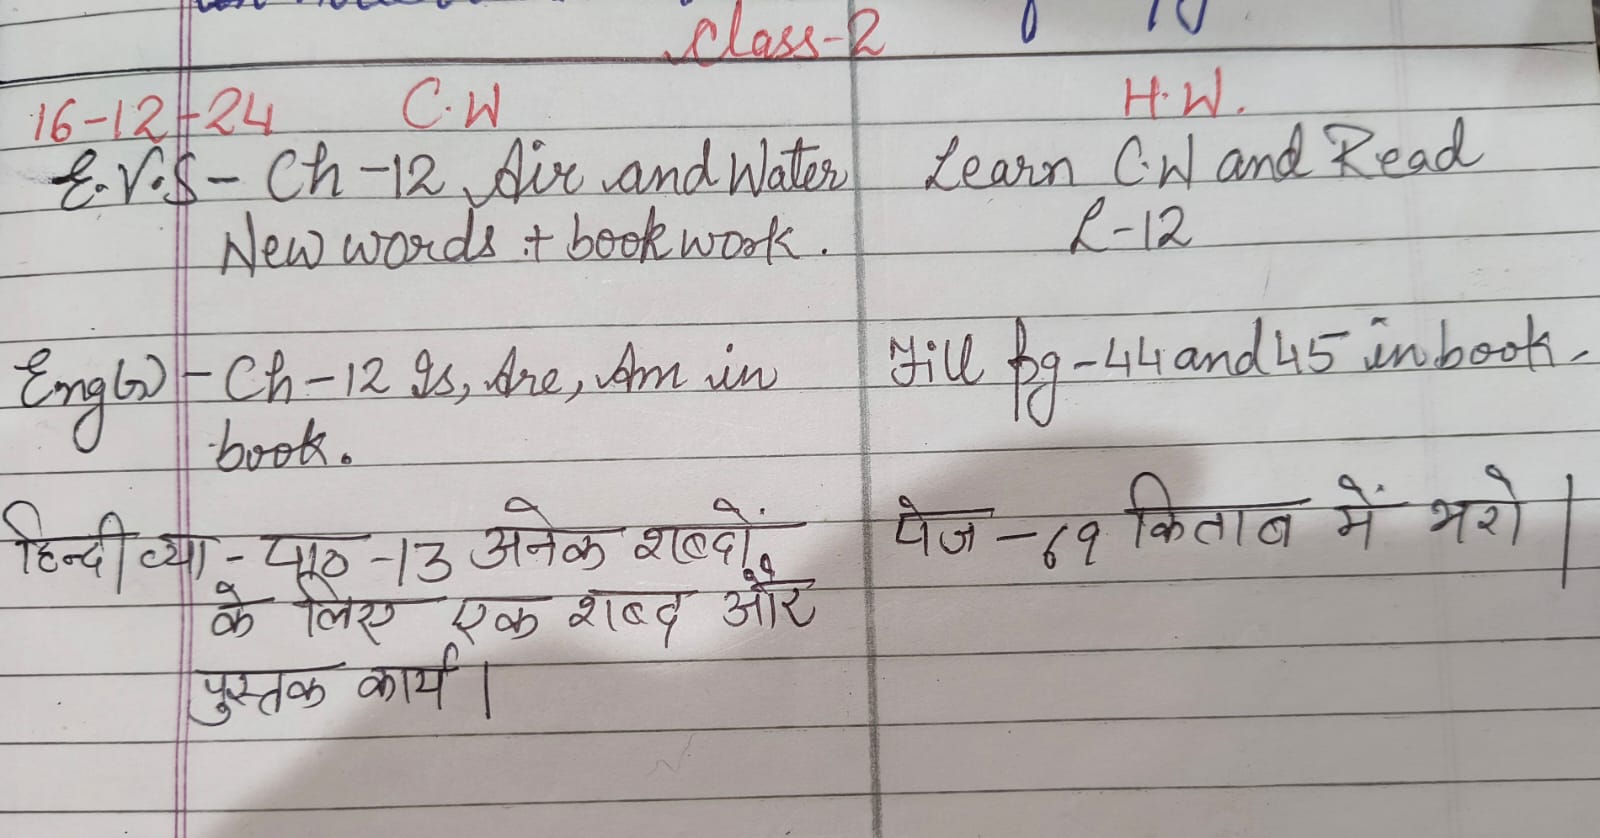 Class-2
16-12-24 C.W H.W.
E.V.S - Ch-12 Air and Water Learn C.W and Read
New words + book work. L-12
Eng(2) - Ch-12 Is, Are, Am in Fill pg-44 and 45 in book.
book.
हिन्दी व्या - पाठ -13 अनेक शब्दों पेज - 69 किताब में भरो ।
के लिए एक शब्द और
पुस्तक कार्य ।